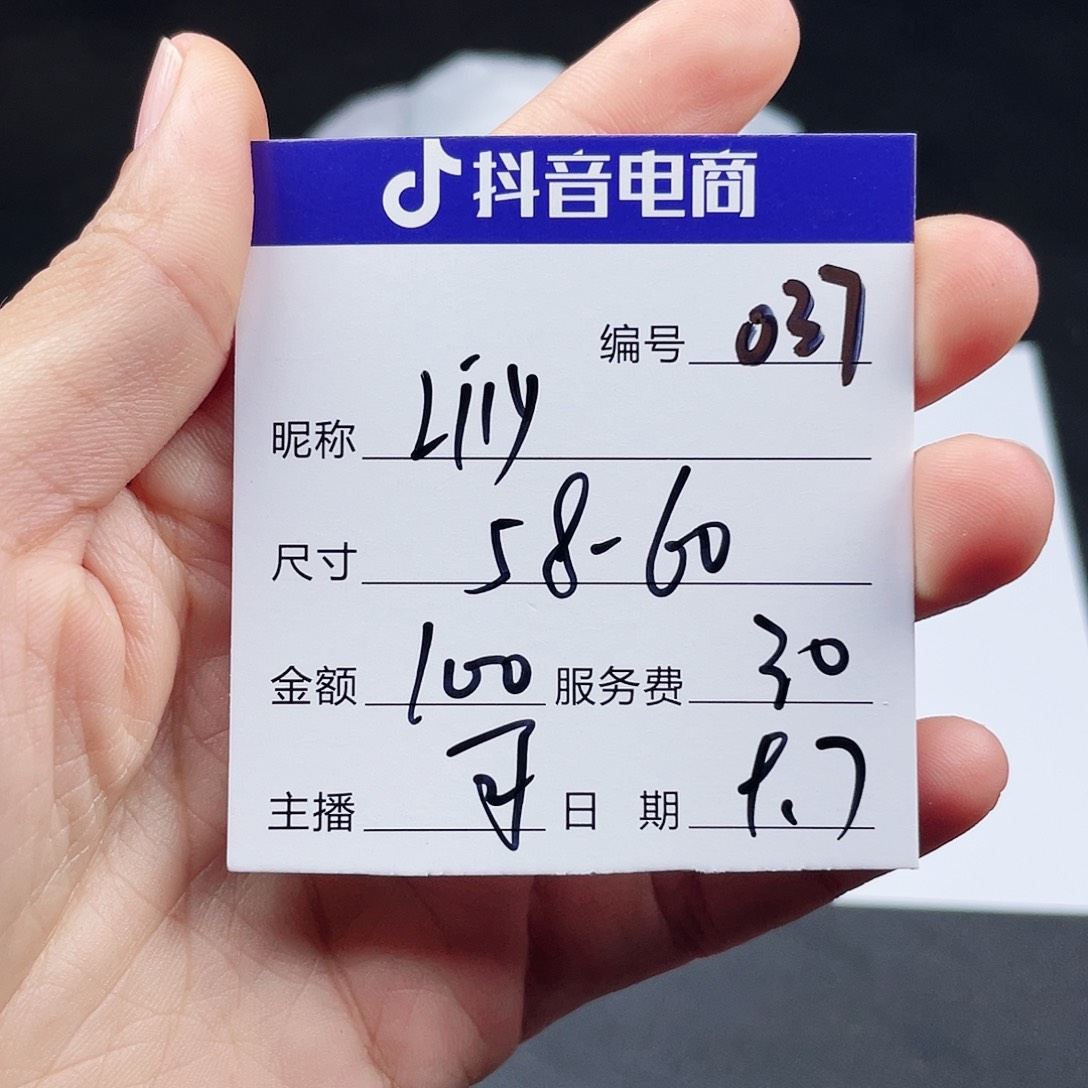 抖音电商
编号 037
昵称 Lily
尺寸 58-60
金额 100 服务费 30
主播 日期